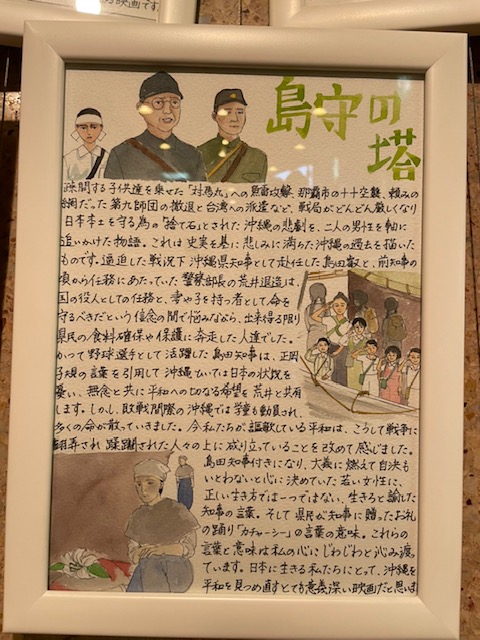 な映画です
島守の塔
疎開する子供達を乗せた「対馬丸」への魚雷攻撃、那覇市の十十空襲、頼みの
綱だった第九師団の撤退と台湾への派遣など、戦局がどんどん厳しくなり
日本本土を守る為の「捨て石」とされた沖縄の悲劇を、二人の男性を軸に
追いかけた物語。これは史実を基に悲しみに満ちた沖縄の過去を描いた
ものです。逼迫した戦況下沖縄県知事として赴任した島田叡と、前知事の
頃から任務にあたっていた警察部長の荒井退造は、
国の役人としての任務と、妻や子を持つ者として命を
守るべきだという信念の間で悩みながら、出来得る限り
県民の食料確保や保護に奔走した人達でした。
かつて野球選手として活躍した島田知事は、正岡
子規の言葉を引用して沖縄ひいては日本の状況を
憂い、無念と共に平和への切なる希望を荒井と共有
します。しかし、敗戦間際の沖縄では学童も動員され、
多くの命が散っていきました。今私たちが謳歌している平和は、こうして戦争に
翻弄され蹂躙された人々の上に成り立っていることを改めて感じました。
島田知事付きになり、大義に燃えて自決も
いとわないと心に決めていた若い女性に、
正しい生き方では一つではない、生きろと諭した
知事の言葉。そして県民が知事に贈ったお礼
の踊り「カチャーシー」の言葉の意味。これらの
言葉と意味は私の心にじわじわと沁み渡っ
ています。日本に生きる私たちにとって、沖縄を
平和を見つめ直すとても意義深い映画だと思います